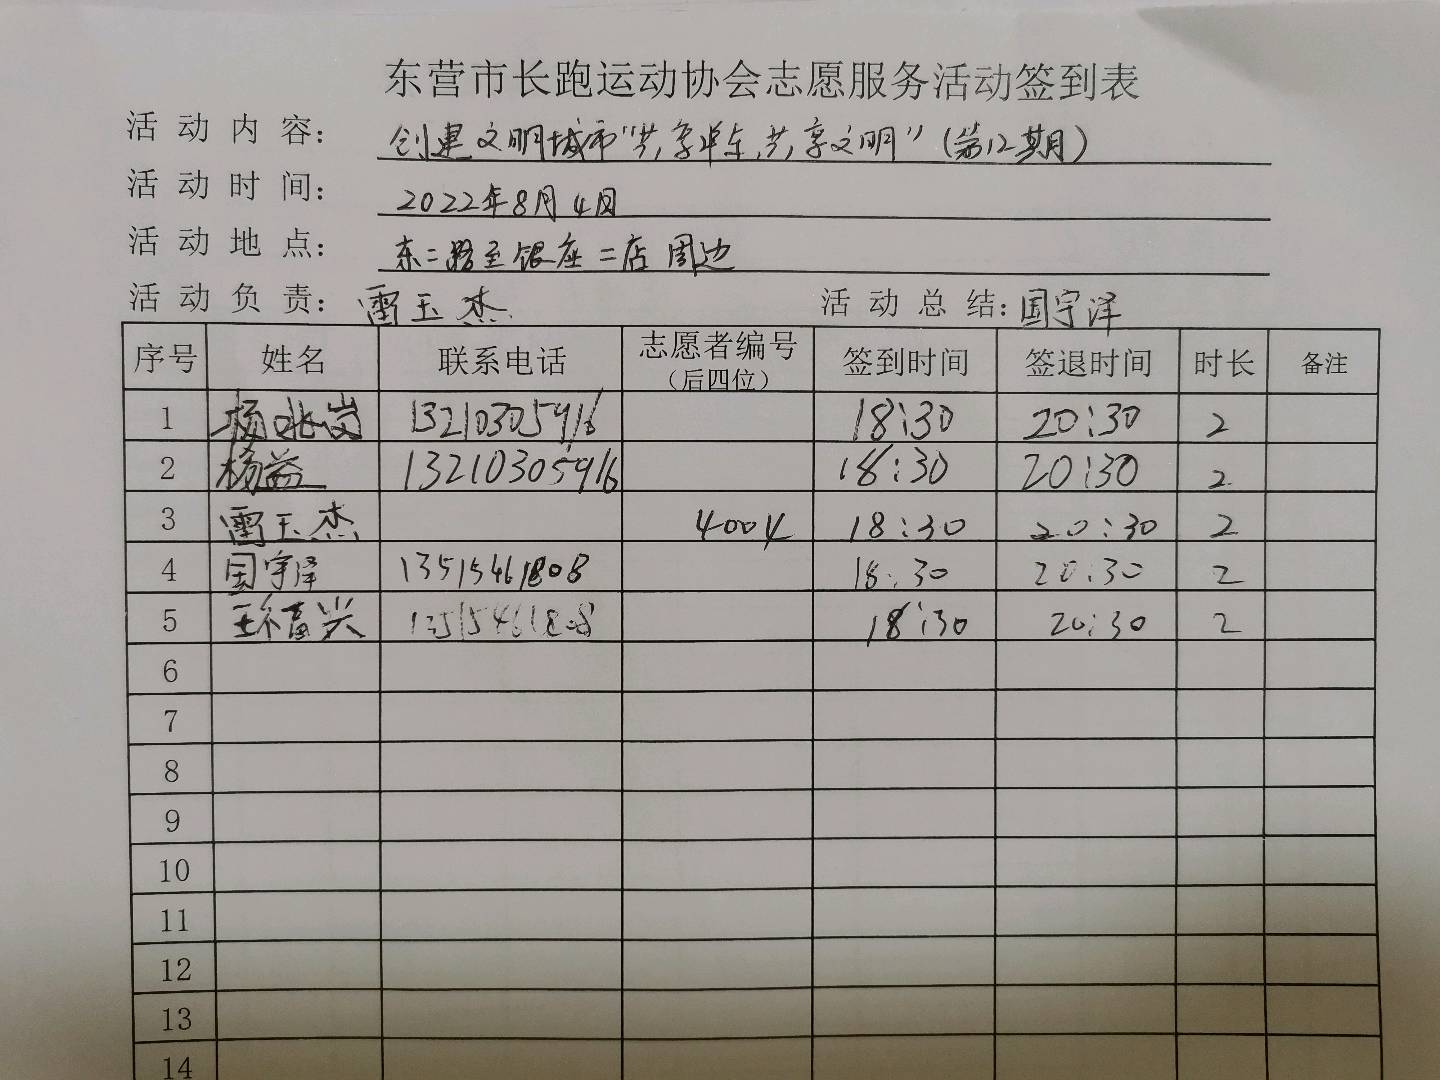 东营市长跑运动协会志愿服务活动签到表
活动内容: 创建文明城市"共享单车,共享文明"(第12期)
活动时间: 2022年8月4日
活动地点: 东二路至银座二店周边
活动负责: 雷玉杰 活动总结: 国宇泽
序号 姓名 联系电话 志愿者编号(后四位) 签到时间 签退时间 时长 备注
1 杨兆岗 13210305916 18:30 20:30 2
2 杨益 13210305916 18:30 20:30 2
3 雷玉杰 4004 18:30 20:30 2
4 国宇泽 13515461808 18:30 20:30 2
5 王福兴 13515461808 18:30 20:30 2
6
7
8
9
10
11
12
13
14